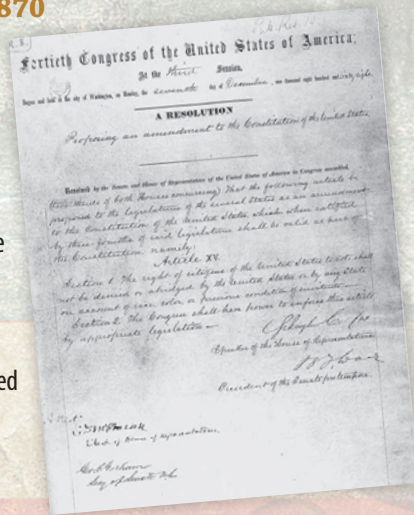 870
Fortieth Congress of the United States of America;
At the third Session,
Begun and held at the city of Washington, on Monday, the seventh day of December, one thousand eight hundred and sixty-eight.
A RESOLUTION
Proposing an amendment to the Constitution of the United States.
Resolved by the Senate and House of Representatives of the United States of America in Congress assembled,
(two-thirds of both Houses concurring) That the following article be
proposed to the legislatures of the several States as an amendment
to the Constitution of the United States, which, when ratified
by three fourths of said legislatures shall be valid as part of
the Constitution, namely:
Article XV.
Section 1. The right of citizens of the United States to vote shall
not be denied or abridged by the United States or by any State
on account of race, color, or previous condition of servitude—
Section 2. The Congress shall have power to enforce this article
by appropriate legislation—
Schuyler Colfax
Speaker of the House of Representatives
President of the Senate pro tempore.
Attest:
Clerk of House of Representatives.
Geo. C. Gorham
Secy of Senate U.S.
e
ed